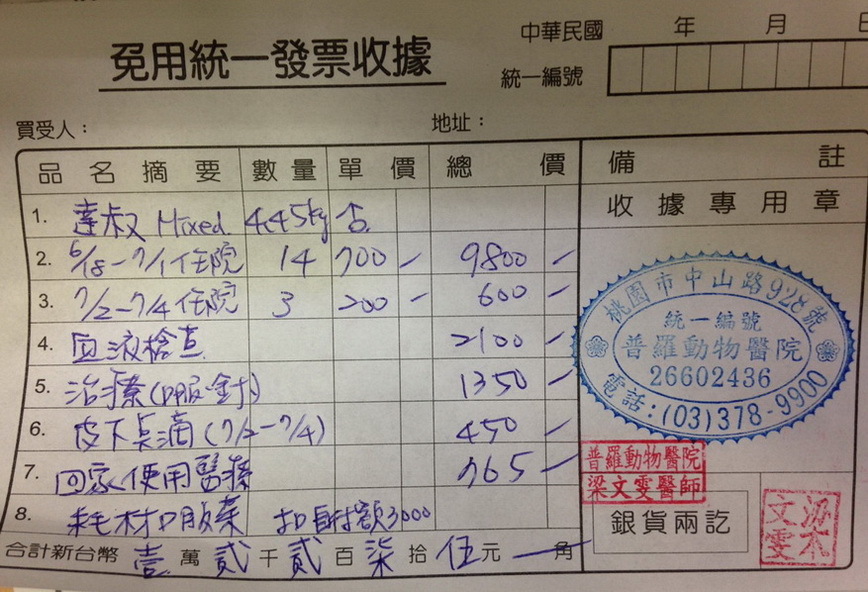 免用統一發票收據
中華民國 年 月 日
統一編號
買受人： 地址：
品名摘要 數量 單價 總價 備註
1. 達叔 Mixed 4.45kg
收據專用章
2. 6/18-7/1住院 14 700 - 9800 -
3. 7/2-7/4住院 3 200 - 600 -
4. 血液檢查 2100 -
5. 治療(口服、針) 1350 -
6. 皮下点滴(7/2-7/4) 450 -
7. 回家使用醫療 765 -
8. 耗材口服藥 扣自付額3000
合計新台幣 壹萬貳千貳百柒拾伍元 角
桃園市中山路928號
統一編號
普羅動物醫院
26602436
電話:(03)378-9900
普羅動物醫院
梁文雯醫師
銀貨兩訖
梁文雯